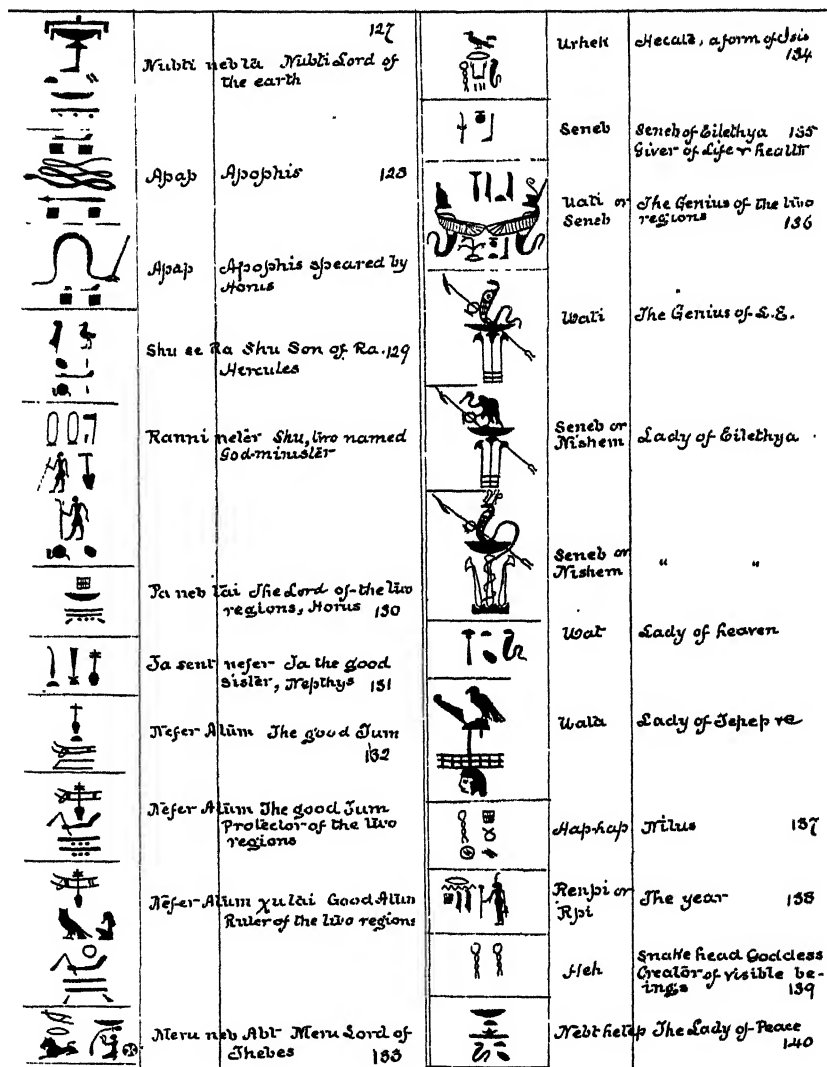 127
Nubti neb ta Nubti Lord of
the earth
Apap Apophis 128
Apap Apophis speared by
Horus
Shu se Ra Shu Son of Ra. 129
Hercules
Ranni neter Shu, two named
God-minister
Pa neb tai The Lord of the two
regions, Horus 130
Ta sent nefer Ta the good
Sister, Nepthys 131
Nefer Atum The good Tum
132
Nefer Atum The good Tum
Protector of the two
regions
Nefer Atum χu tai Good Atum
Ruler of the two regions
Meru neb Abt Meru Lord of
Thebes 133
Urhek Hecate, a form of Isis
134
Seneb Seneb of Eilethya 135
Giver of Life & health
Uati or The Genius of the two
Seneb regions 136
Wati The Genius of L.E.
Seneb or Lady of Eilethya
Nishem
Seneb or " "
Nishem
Wat Lady of heaven
Uata Lady of Tepep re
Hap-hap Nilus 137
Renpi or The year 138
Rpi
Heh Snake head Goddess
Creator of visible be-
ings 139
Nebt hetep The Lady of Peace
140